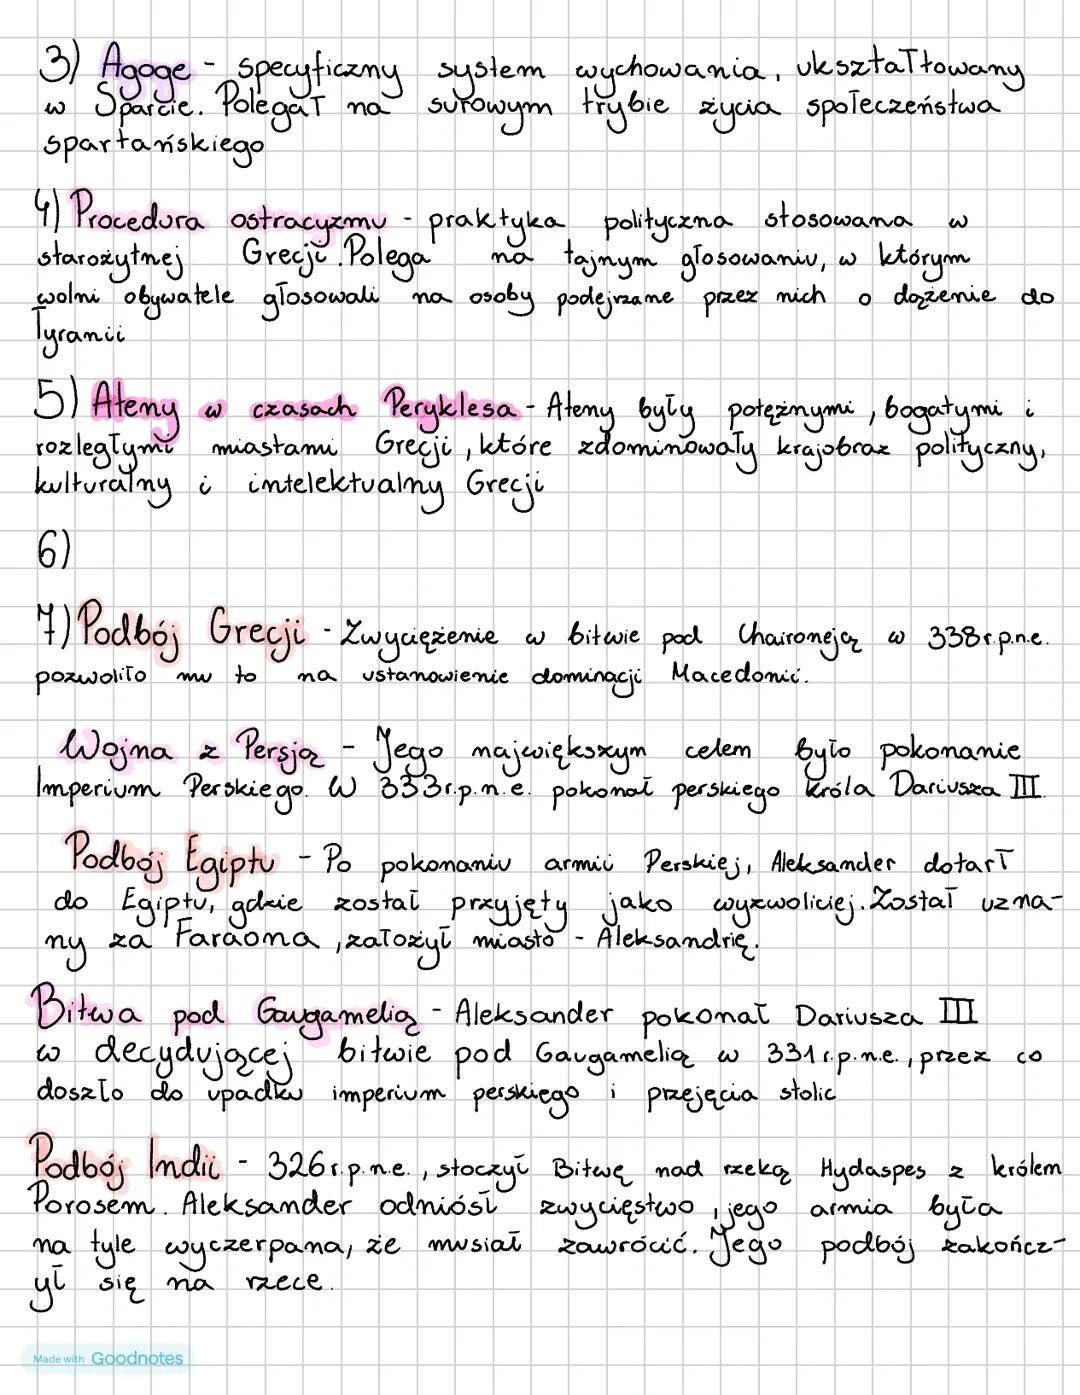 3) Agoge - specyficzny system wychowania, ukształtowany
w Sparcie. Polegał na surowym trybie życia społeczeństwa
spartańskiego
4) Procedura ostracyzmu - praktyka polityczna stosowana w
starożytnej Grecji. Polega na tajnym głosowaniu, w którym
wolni obywatele głosowali na osoby podejrzane przez nich o dążenie do
Tyranii
5) Ateny w czasach Peryklesa - Ateny były potężnymi, bogatymi i
rozległymi miastami Grecji, które zdominowały krajobraz polityczny,
kulturalny i intelektualny Grecji
6)
7) Podbój Grecji - Zwyciężenie w bitwie pod Chaironeją w 338r.p.n.e.
pozwoliło mu to na ustanowienie dominacji Macedonii.
Wojna z Persją - Jego największym celem było pokonanie
Imperium Perskiego. W 333r.p.n.e. pokonał perskiego króla Dariusza III.
Podbój Egiptu - Po pokonaniu armii Perskiej, Aleksander dotarł
do Egiptu, gdzie został przyjęty jako wyzwoliciej. Został uzna-
ny za Faraona, założył miasto - Aleksandrię.
Bitwa pod Gaugamelią - Aleksander pokonał Dariusza III
w decydującej bitwie pod Gaugamelią w 331r.p.n.e., przez co
doszło do upadku imperium perskiego i przejęcia stolic
Podbój Indii - 326r.p.n.e., stoczył Bitwę nad rzeką Hydaspes z królem
Porosem. Aleksander odniósł zwycięstwo, jego armia była
na tyle wyczerpana, że musiał zawrócić. Jego podbój zakończ-
ył się na rzece.
Made with Goodnotes